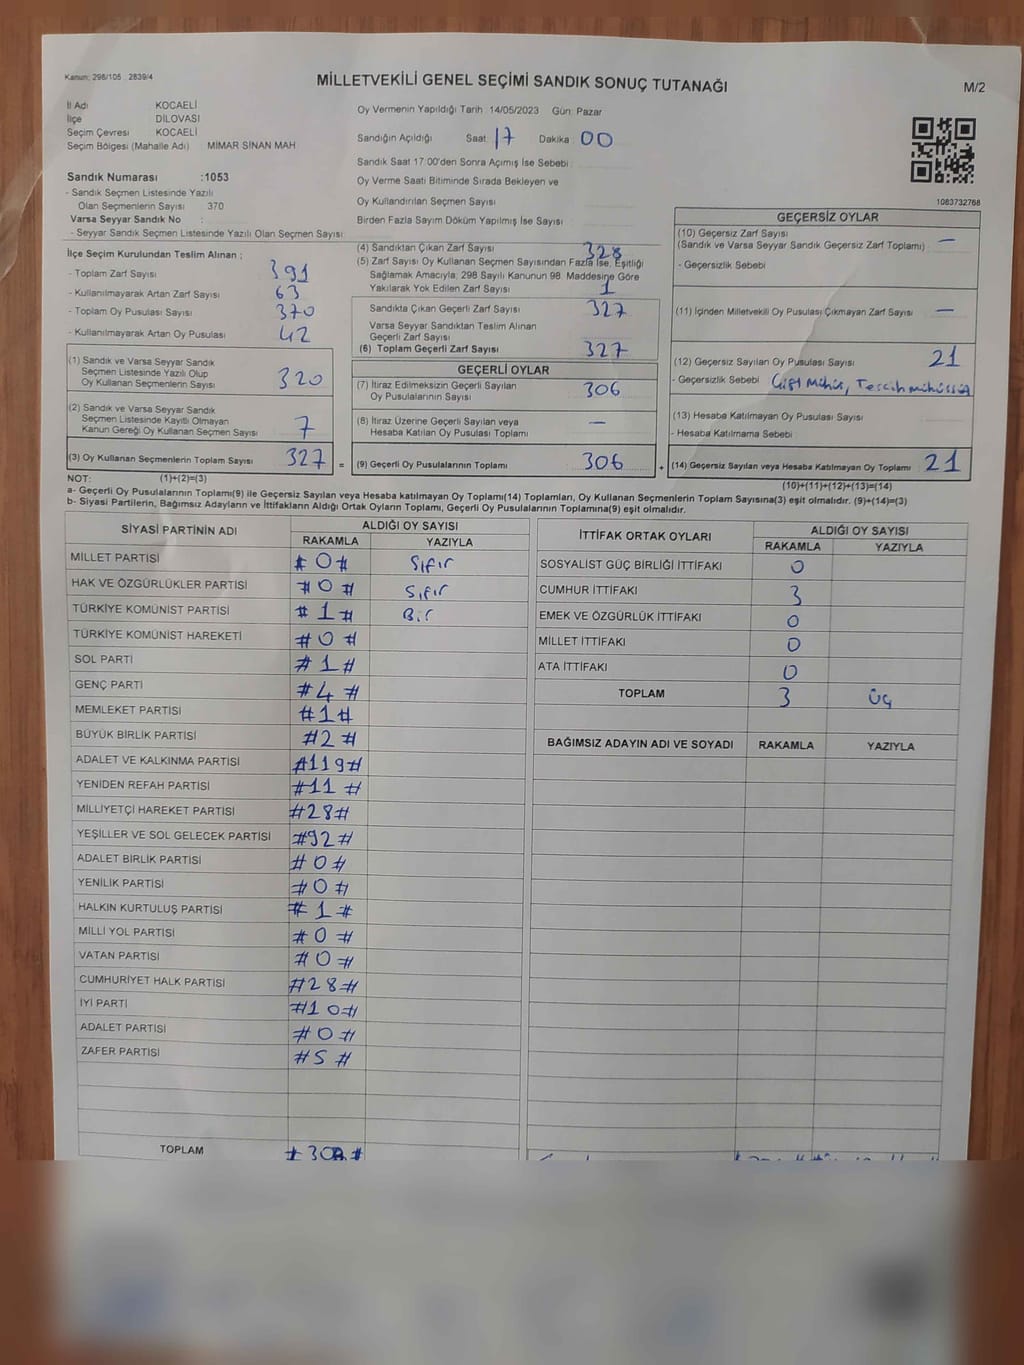 Kanun: 298/105 2839/4
MİLLETVEKİLİ GENEL SEÇİMİ SANDIK SONUÇ TUTANAĞI
M/2
İl Adı KOCAELİ
İlçe DİLOVASI
Seçim Çevresi KOCAELİ
Seçim Bölgesi (Mahalle Adı) MİMAR SİNAN MAH
Sandık Numarası :1053
- Sandık Seçmen Listesinde Yazılı
Olan Seçmenlerin Sayısı 370
Varsa Seyyar Sandık No :
- Seyyar Sandık Seçmen Listesinde Yazılı Olan Seçmen Sayısı:
Oy Vermenin Yapıldığı Tarih : 14/05/2023 Gün: Pazar
Sandığın Açıldığı Saat 17 Dakika 00
Sandık Saat 17:00'den Sonra Açımış İse Sebebi
Oy Verme Saati Bitiminde Sırada Bekleyen ve
Oy Kullandırılan Seçmen Sayısı
Birden Fazla Sayım Döküm Yapılmış İse Sayısı
1083732768
İlçe Seçim Kurulundan Teslim Alınan ;
- Toplam Zarf Sayısı 391
- Kullanılmayarak Artan Zarf Sayısı 63
- Toplam Oy Pusulası Sayısı 370
- Kullanılmayarak Artan Oy Pusulası 42
(1) Sandık ve Varsa Seyyar Sandık
Seçmen Listesinde Yazılı Olup
Oy Kullanan Seçmenlerin Sayısı 320
(2) Sandık ve Varsa Seyyar Sandık
Seçmen Listesinde Kayıtlı Olmayan
Kanun Gereği Oy Kullanan Seçmen Sayısı 7
(3) Oy Kullanan Seçmenlerin Toplam Sayısı 327 =
(4) Sandıktan Çıkan Zarf Sayısı 328
(5) Zarf Sayısı Oy Kullanan Seçmen Sayısından Fazla İse, Eşitliği
Sağlamak Amacıyla; 298 Sayılı Kanunun 98. Maddesine Göre
Yakılarak Yok Edilen Zarf Sayısı 1
Sandıkta Çıkan Geçerli Zarf Sayısı 327
Varsa Seyyar Sandıktan Teslim Alınan
Geçerli Zarf Sayısı
(6) Toplam Geçerli Zarf Sayısı 327
GEÇERLİ OYLAR
(7) İtiraz Edilmeksizin Geçerli Sayılan
Oy Pusulalarının Sayısı 306
(8) İtiraz Üzerine Geçerli Sayılan veya
Hesaba Katılan Oy Pusulası Toplamı —
(9) Geçerli Oy Pusulalarının Toplamı 306 +
GEÇERSİZ OYLAR
(10) Geçersiz Zarf Sayısı
(Sandık ve Varsa Seyyar Sandık Geçersiz Zarf Toplamı) —
- Geçersizlik Sebebi
(11) İçinden Milletvekili Oy Pusulası Çıkmayan Zarf Sayısı —
(12) Geçersiz Sayılan Oy Pusulası Sayısı 21
- Geçersizlik Sebebi Çift Mühür,
(13) Hesaba Katılmayan Oy Pusulası Sayısı
- Hesaba Katılmama Sebebi
(14) Geçersiz Sayılan veya Hesaba Katılmayan Oy Toplamı 21
NOT: (1)+(2)=(3)
(10)+(11)+(12)+(13)=(14)
a- Geçerli Oy Pusulalarının Toplamı(9) ile Geçersiz Sayılan veya Hesaba katılmayan Oy Toplamı(14) Toplamları, Oy Kullanan Seçmenlerin Toplam Sayısına(3) eşit olmalıdır. (9)+(14)=(3)
b- Siyasi Partilerin, Bağımsız Adayların ve İttifakların Aldığı Ortak Oyların Toplamı, Geçerli Oy Pusulalarının Toplamına(9) eşit olmalıdır.
SİYASİ PARTİNİN ADI ALDIĞI OY SAYISI
RAKAMLA YAZIYLA
MİLLET PARTİSİ # 0 # Sıfır
HAK VE ÖZGÜRLÜKLER PARTİSİ # 0 # Sıfır
TÜRKİYE KOMÜNİST PARTİSİ # 1 # Bir
TÜRKİYE KOMÜNİST HAREKETİ # 0 #
SOL PARTİ # 1 #
GENÇ PARTİ # 4 #
MEMLEKET PARTİSİ # 1 #
BÜYÜK BİRLİK PARTİSİ # 2 #
ADALET VE KALKINMA PARTİSİ #119#
YENİDEN REFAH PARTİSİ #11 #
MİLLİYETÇİ HAREKET PARTİSİ #28#
YEŞİLLER VE SOL GELECEK PARTİSİ #92#
ADALET BİRLİK PARTİSİ # 0 #
YENİLİK PARTİSİ # 0 #
HALKIN KURTULUŞ PARTİSİ # 1 #
MİLLİ YOL PARTİSİ # 0 #
VATAN PARTİSİ # 0 #
CUMHURİYET HALK PARTİSİ #28#
İYİ PARTİ #10#
ADALET PARTİSİ # 0 #
ZAFER PARTİSİ # 5 #
TOPLAM
İTTİFAK ORTAK OYLARI ALDIĞI OY SAYISI
RAKAMLA YAZIYLA
SOSYALİST GÜÇ BİRLİĞİ İTTİFAKI 0
CUMHUR İTTİFAKI 3
EMEK VE ÖZGÜRLÜK İTTİFAKI 0
MİLLET İTTİFAKI 0
ATA İTTİFAKI 0
TOPLAM 3 Üç
BAĞIMSIZ ADAYIN ADI VE SOYADI RAKAMLA YAZIYLA